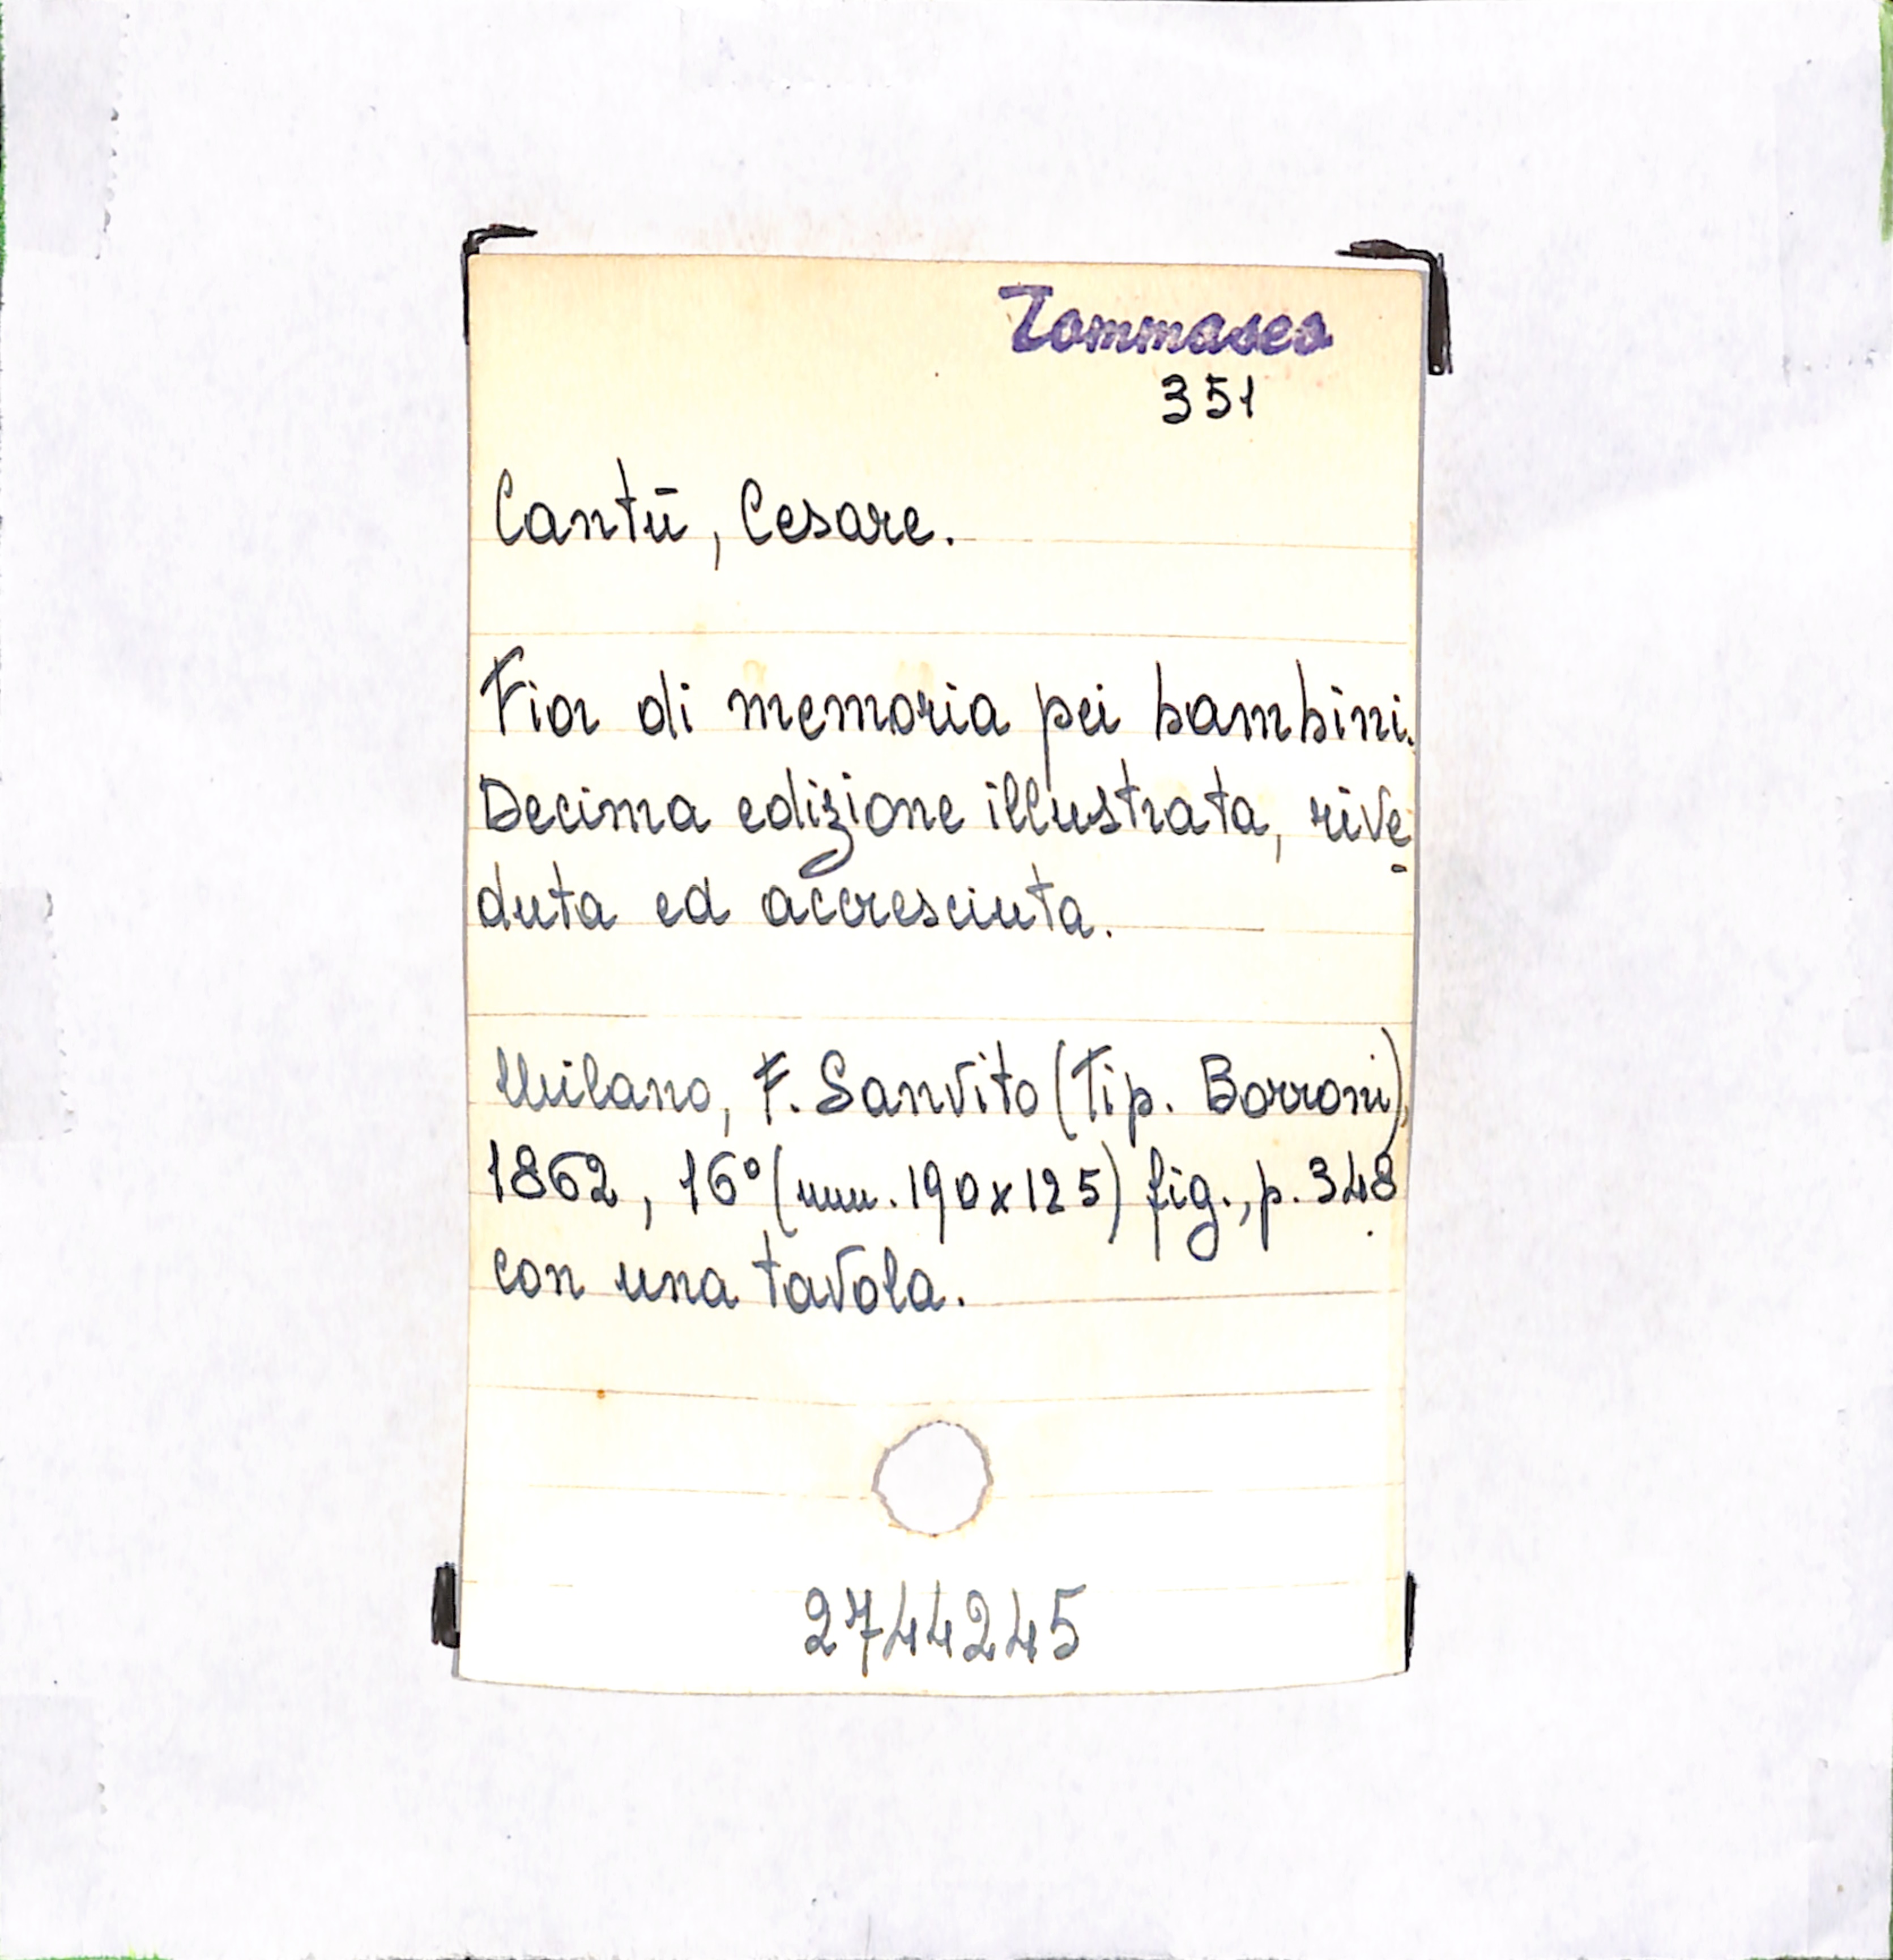 Tommaseo
351
Cantū, Cesare.
Fior di memoria pei bambini.
Decima edizione illustrata, rive
duta ed accresciuta.
Milano, F. Sanvito (Tip. Borroni),
1862, 16° (mm. 190x125) fig., p. 348
con una tavola.
2744245